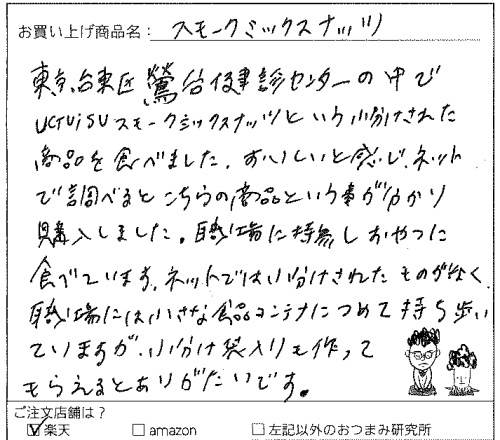 お買い上げ商品名： スモークミックスナッツ
東京、台東区、鶯谷健診センターの中で
UGUISUスモークミックスナッツという小分けされた
商品を食べました。おいしいと感じ、ネット
で調べるとこちらの商品という事が分かり
購入しました。職場に持参しおやつに
食べています。ネットでは小分けされたものがなく、
職場には小さな食品コンテナにつめて持ち歩い
ていますが、小分け袋入りも作って
もらえるとありがたいです。
ご注文店舗は？
☑楽天 □amazon □左記以外のおつまみ研究所